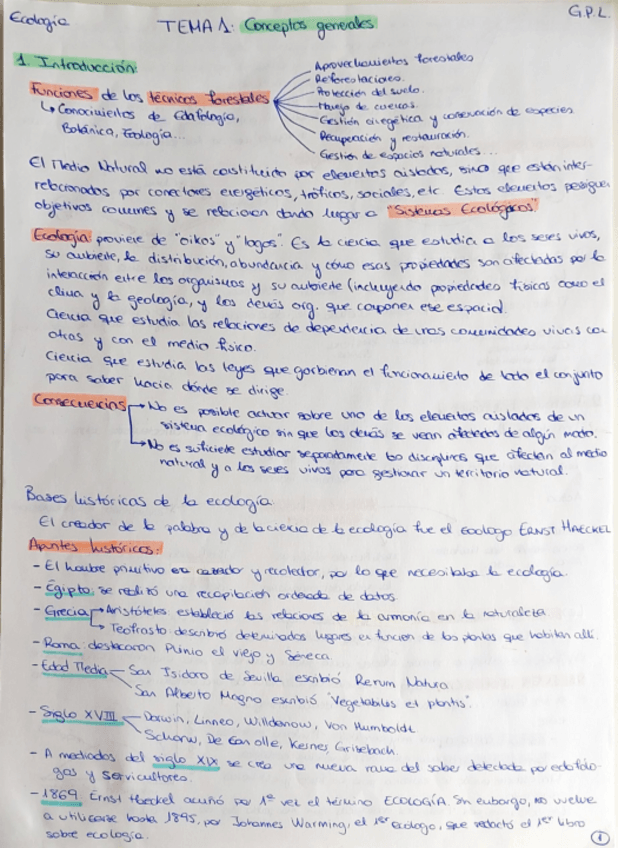 Ecología
G.P.L.
TEMA 1: Conceptos generales
1. Introducción:
Funciones de los técnicos forestales
Aprovechamientos forestales
Reforestaciones.
Protección del suelo.
Manejo de cuencas.
Gestión cinegética y conservación de especies
Recuperación y restauración.
Gestión de espacios naturales...
↳ Conocimientos de Edafología,
Botánica, Ecología...
El Medio Natural no está constituido por elementos aislados, sino que están inter-
relacionados por conectores energéticos, tróficos, sociales, etc. Estos elementos persiguen
objetivos comunes y se relacionan dando lugar a "Sistemas Ecológicos"
Ecología: proviene de "oikos" y "logos". Es la ciencia que estudia a los seres vivos,
su ambiente, la distribución, abundancia y cómo esas propiedades son afectadas por la
interacción entre los organismos y su ambiente (incluyendo propiedades físicas como el
clima y la geología, y los demás org. que componen ese espacio).
Ciencia que estudia las relaciones de dependencia de unas comunidades vivas con
otras y con el medio físico.
Ciencia que estudia las leyes que gobiernan el funcionamiento de todo el conjunto
para saber hacia dónde se dirige.
Consecuencias → No es posible actuar sobre uno de los elementos aislados de un
sistema ecológico sin que los demás se vean afectados de algún modo.
→ No es suficiente estudiar separadamente las disciplinas que afectan al medio
natural y a los seres vivos para gestionar un territorio natural.
Bases históricas de la ecología:
El creador de la palabra y de la ciencia de la ecología fue el zoólogo ERNST HAECKEL
Apuntes históricos:
- El hombre primitivo era cazador y recolector, por lo que necesitaba la ecología.
- Egipto: se realizó una recopilación ordenada de datos.
- Grecia → Aristóteles estableció las relaciones de la armonía en la naturaleza
→ Teofrasto describió determinados lugares en función de las plantas que habitan allí.
- Roma: destacaron Plinio el viejo y Séneca.
- Edad Media — San Isidoro de Sevilla escribió Rerum Natura.
San Alberto Magno escribió "Vegetabilus et plantis".
- Siglo XVIII — Darwin, Linneo, Willdenow, Von Humboldt
Schouw, De Can olle, Kerner, Grisebach.
- A mediados del siglo XIX se crea una nueva rama del saber detectada por edafólo-
gos y servicultores.
- 1869 Ernst Haeckel acuñó por 1ª vez el término ECOLOGÍA. Sin embargo, no vuelve
a utilizarse hasta 1895, por Johannes Warming, el 1er ecólogo, que redactó el 1er libro
sobre ecología.
1